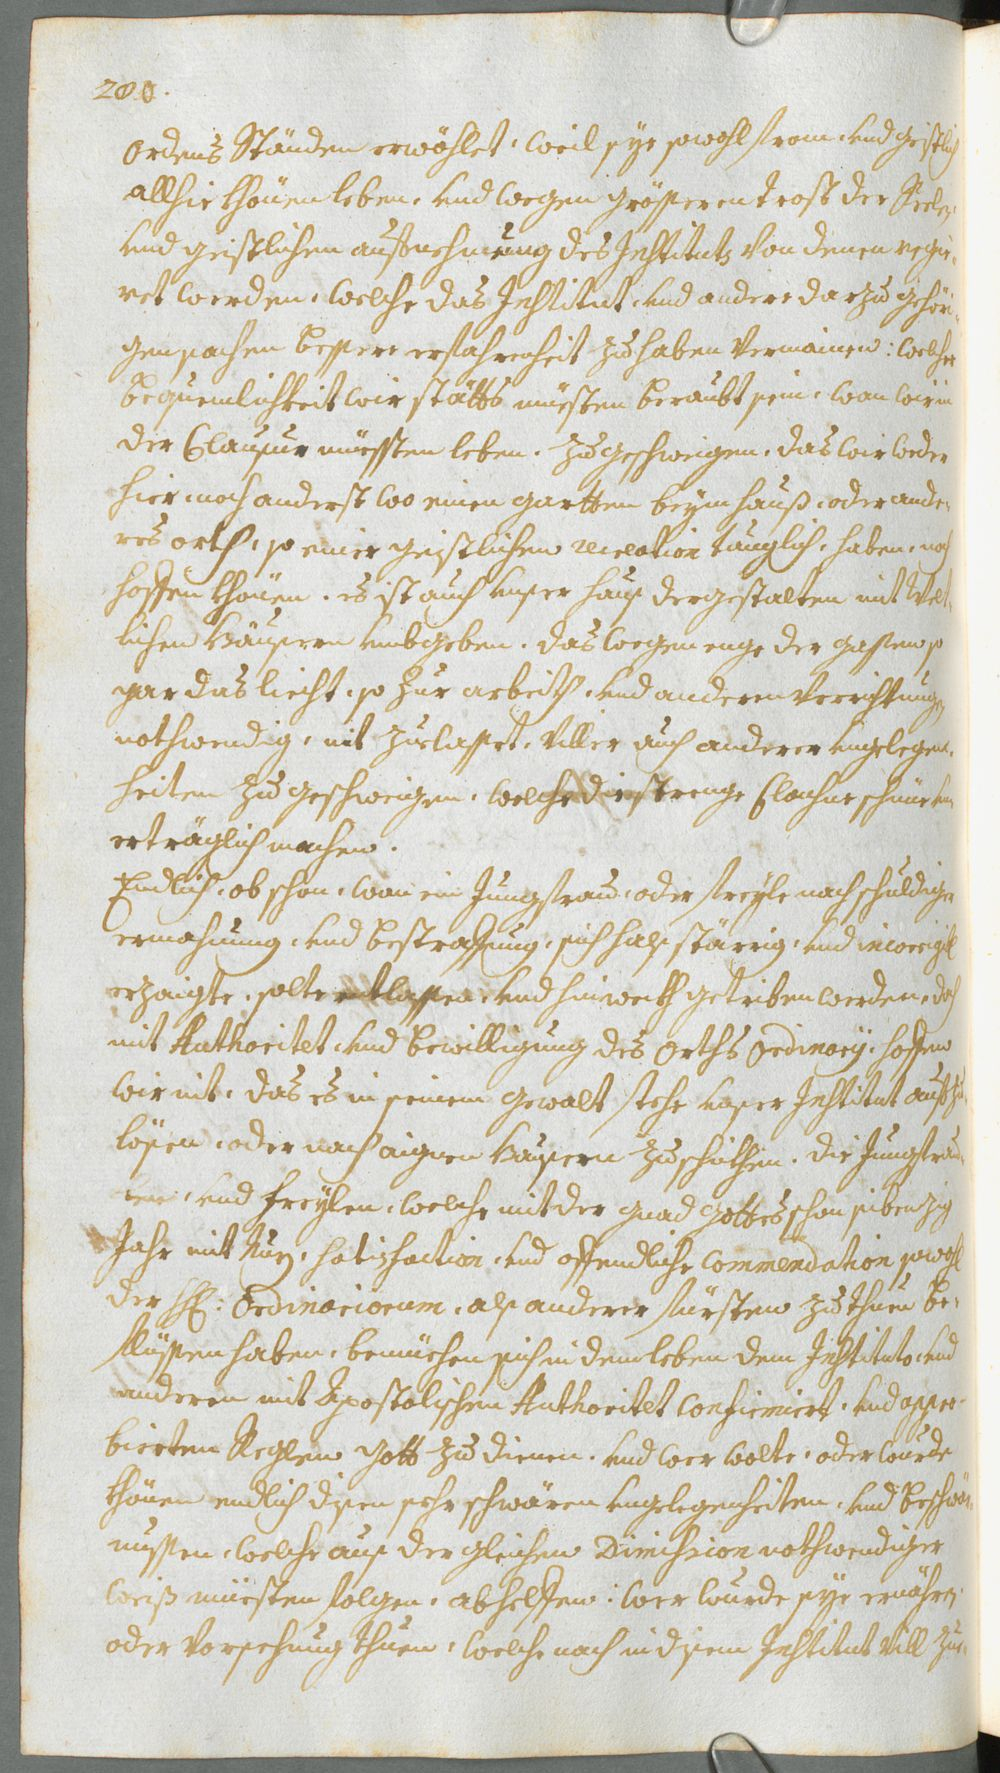 200.
Ordens Ständen erwöhlet, weil sye sowohl from, und geistlich
allhie khönen leben, und wegen grösseren trost der Seelen,
und geistlichen auffnehmung des Institutz von denen regie-
ret werden, welche das Institut, und andere darzu gehöri-
gen sachen bessere erfahrenheit zu haben vermainen: welcher
bequemlichkeit wir stätts müesten beraubt sein, wan wir in
der Clausur müessten leben. Zugeschweigen, das wir weder
hier, noch anderst wo einen gartten beym hauß, oder ande-
res orth, so einer geistlichen recreation tauglich, haben, noch
hoffen khönen. es ist auch unser haus dergestalten mit welt-
lichen häusern umbgeben, das wegen enge der gassen so
gar das liecht, so zur arbeith, und anderen verrichtungen
nothwendig, nit zuelasset, viller auch anderer ungelegen-
heiten zu geschweigen, welche die strenge Clausur schier un-
erträglich machen.
Endlich, ob schon, wan ein Jungfrau, oder freyle nach schuldiger
ermahnung, und bestraffung, sich halsstärrig, und incorrigibl
erzaigte, solte entlassen, und hinweckh getriben werden, doch
mit Authoritet, und bewilligung des Orths Ordinarij, hoffen
wir nit, das es in seinem gewalt stehe unser Institut auffzu-
lösen, oder nach aignen häusern zuschikhen. die Jungfrau-
en, und freylen, welche mit der gnad Gottes schon sibenzig
Jahr mit Nuz, satisfaction, und offendliche commendation sowohl
der HH: Ordinariorum, als anderer fürsten zu thuen be-
flüssen haben, bemüehen sich in dem leben dem Instituto, und
anderen mit Apostolischen Authoritet confirmiert, und appro-
bierten Reglen Gott zu dienen. und wer wolte, oder wurde
khönen endlich disen sehr schwären ungelegenheiten, und beschwär-
nussen, welche aus dergleichen Dimission nothwendiger
weiß müesten folgen, abhelffen: wer wurde sye ernähren,
oder vorsehung thuen, welche nach in disem Institut vill zue-